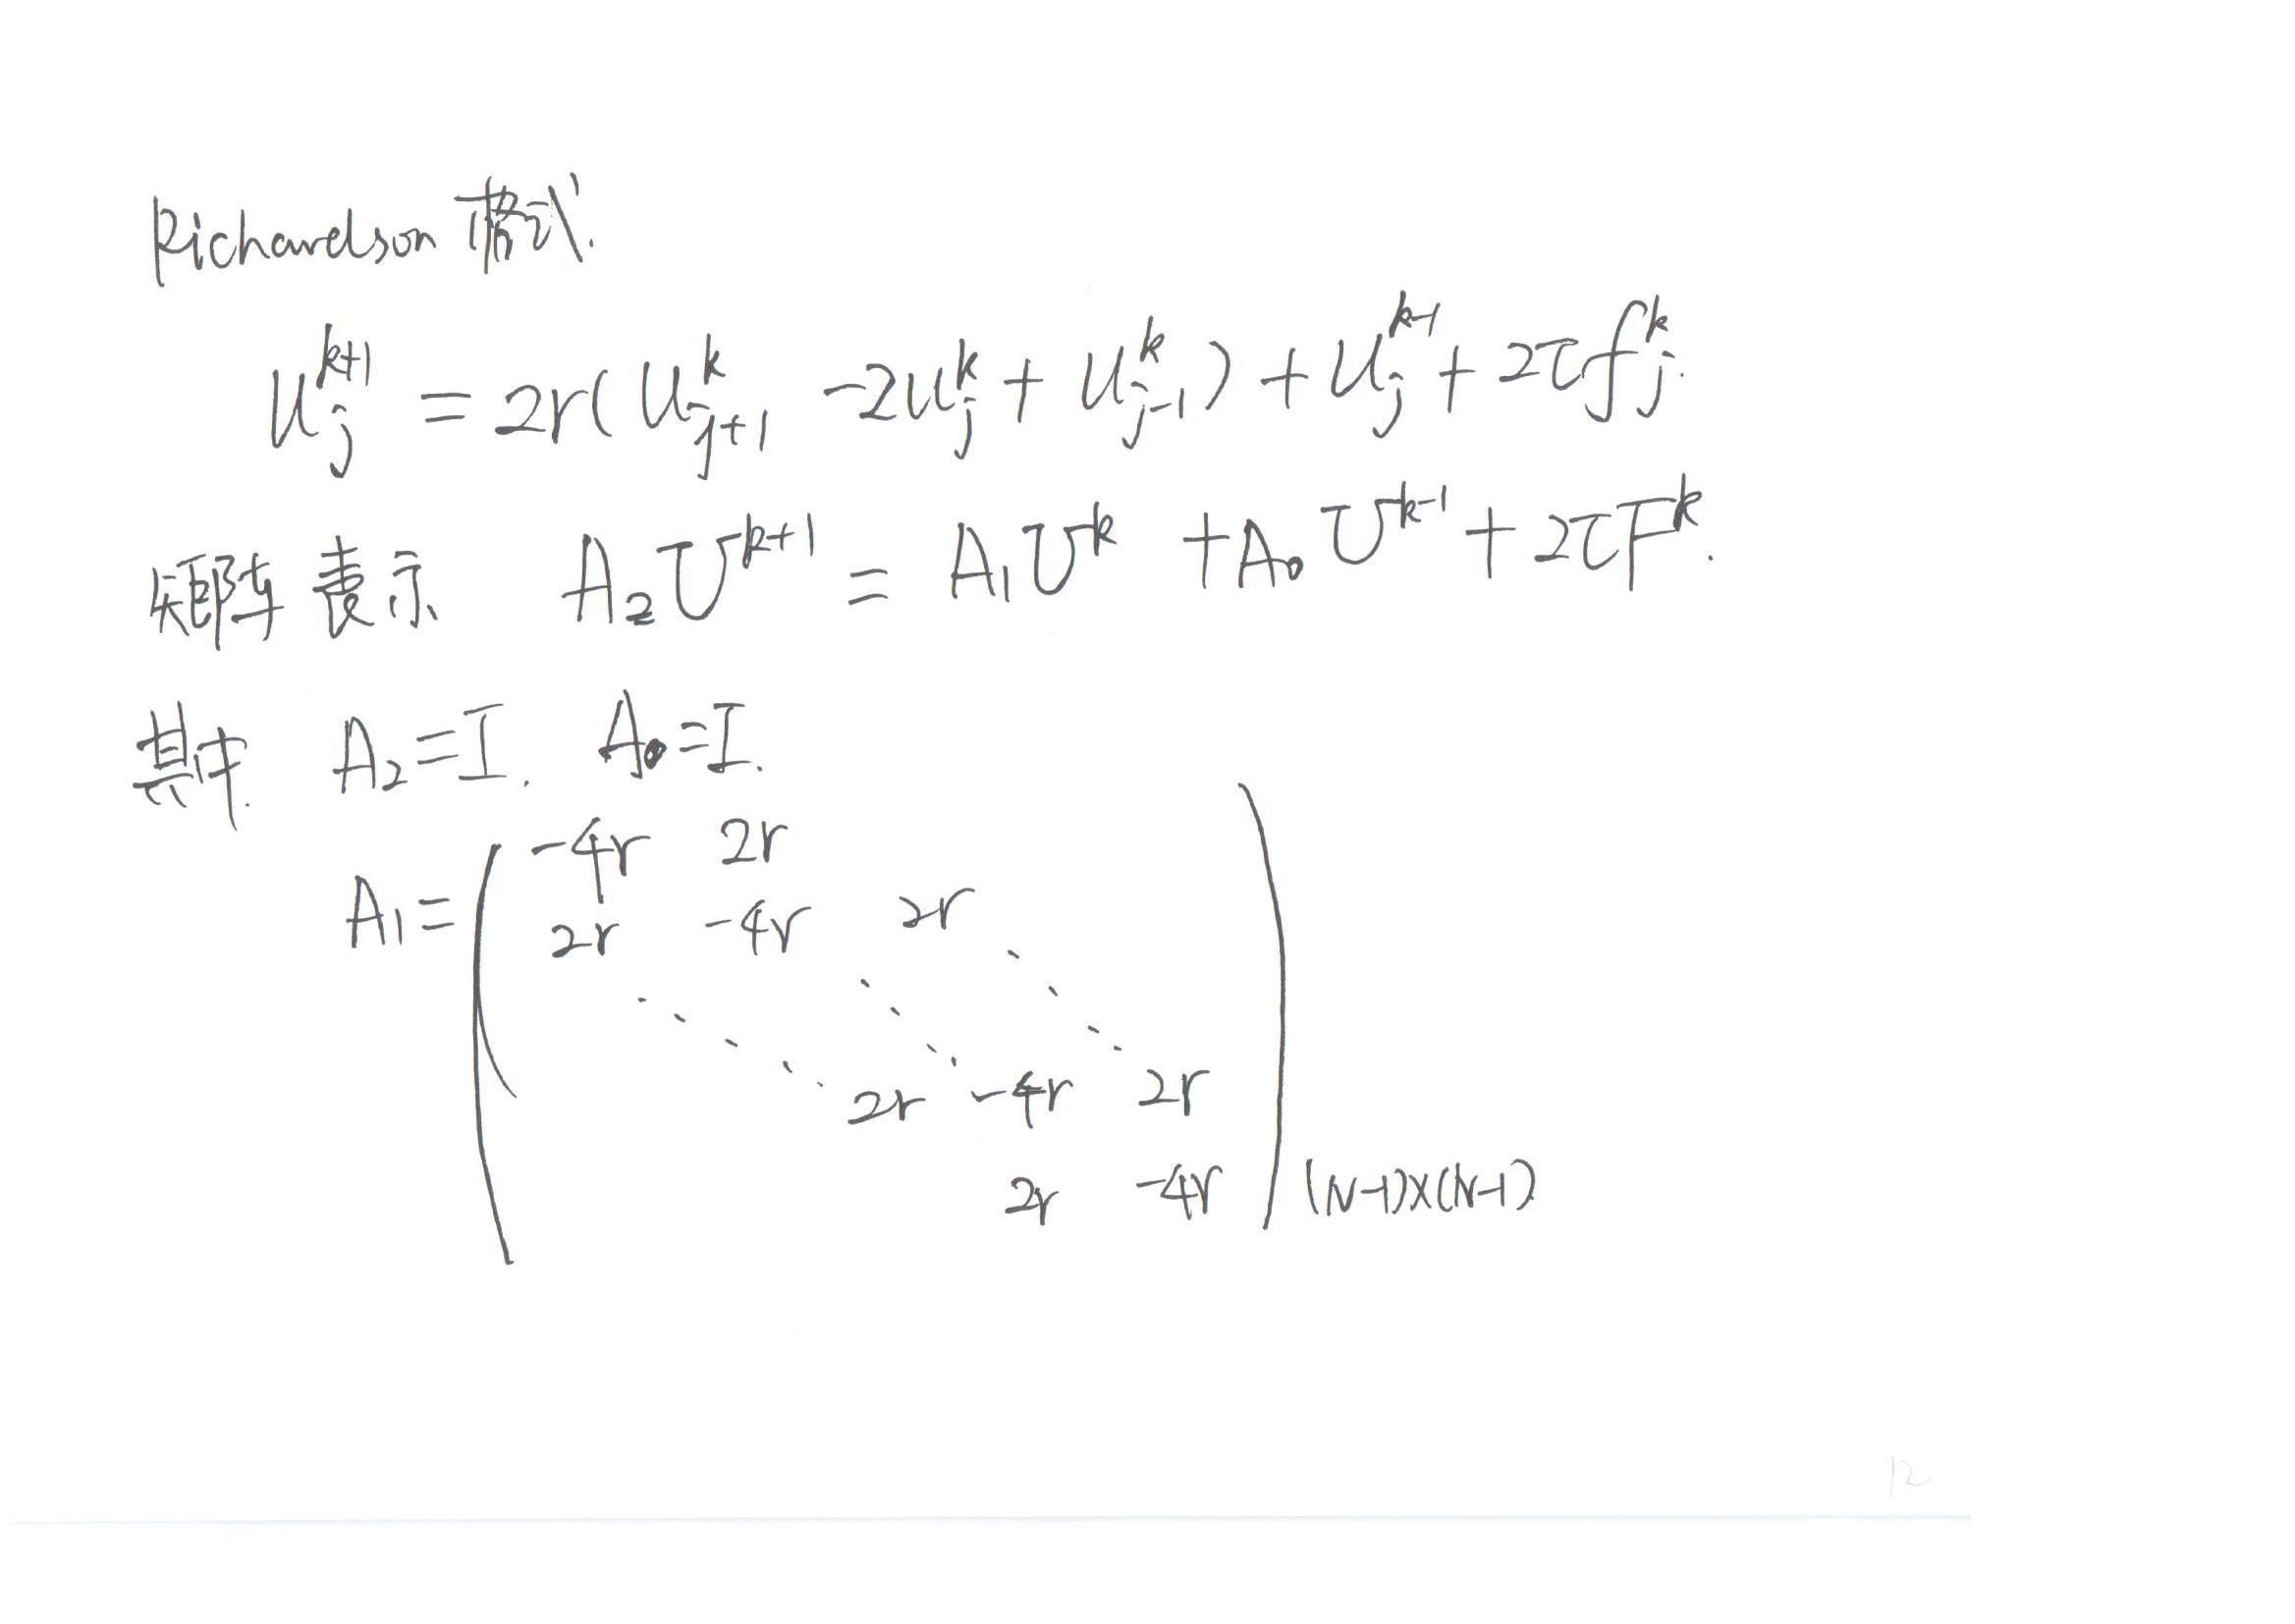 Richardson 格式.
u_j^{k+1} = 2r(u_{j+1}^k -2u_j^k + u_{j-1}^k) + u_j^{k-1} + 2τf_j^k.
矩阵表示 A₂U^{k+1} = A₁U^k + A₀U^{k-1} + 2τF^k.
其中. A₂=I. A₀=I.
-4r 2r
A₁= 2r -4r 2r
2r -4r 2r
2r -4r (N-1)×(N-1)
12